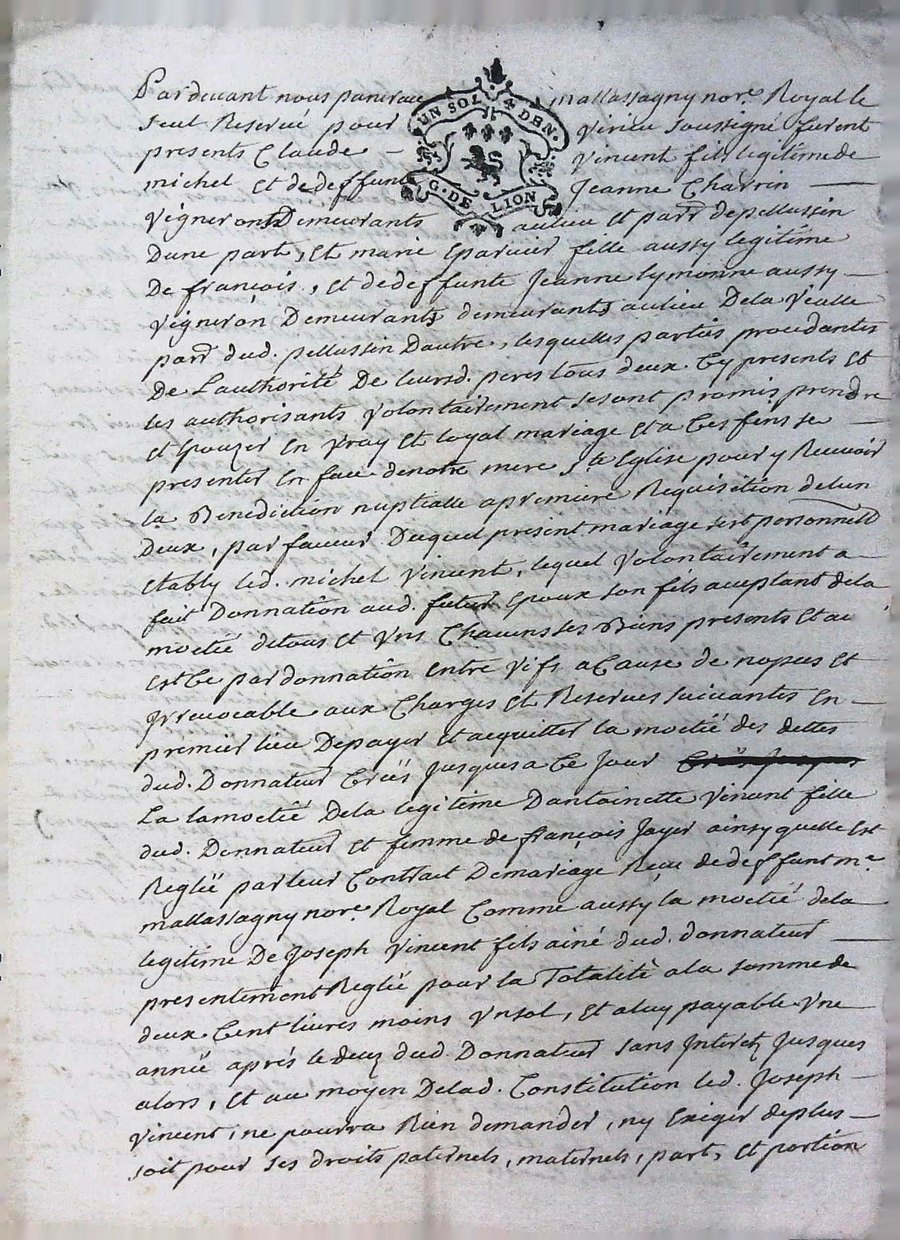 Pardevant nous pancrace mallassagny nore. Royal le
seul Reservé pour virieu soussigné furent
presents Claude vincent fils legitime de
michel et de deffunte Jeanne Charrin
UN SOL 4 DEN.
G. DE LION
vignerons Demeurants aulieu et parr. de pellussin
Dune part, et marie Eparvier fille aussy legitime
De françois, et de deffunte Jeanne lymonne aussy
vigneron Demeurants demeurants aulieu Dela Vealle
parr. dud. pellussin Dautre, lesquelles parties procedantes
De Lauthorité De leursd. peres tous deux Cy presents et
les authorisants volontairement se sont promis prendre
et Epouzer En vray et loyal mariage et a Ces fins se
presenter En face de notre mere Ste Eglise pour y Recevoir
la Benediction nuptialle a premiere Requisition de lun
deux, par faveur Duquel present mariage sest personnell
Etably led. michel vincent, lequel volontairement a
fait Donnation aud. futur Epoux son fils aceptant dela
moctié de tous et vns Chacuns ses Biens presents et au
est Ce par donnation entre vifs a Cause de nopces et
Irrevocable aux Charges et Reserves suivantes En
premier lieu De payer et acquitter la moctié des dettes
dud. Donnateur Creés Jusques a Ce Jour
La la moctié Dela legitime Dantoinette vincent fille
dud. Donnateur et femme de françois Jayer ainsy quelle Est
Reglée par leur Contrat De mariage Receu de deffunt me.
mallassagny nore. Royal Comme aussy la moctié dela
legitime De Joseph vincent fils ainé dud. donnateur
presentement Reglée pour la Totalité ala somme de
deux Cent livres moins vn sol, et aluy payable vne
année aprés le decez dud. Donnateur sans Interetz Jusques
alors, et au moyen Delad. Constitution led. Joseph
vincent, ne pourra Rien demander, ny Exiger de plus
soit pour ses droits paternels, maternels, part, et portion